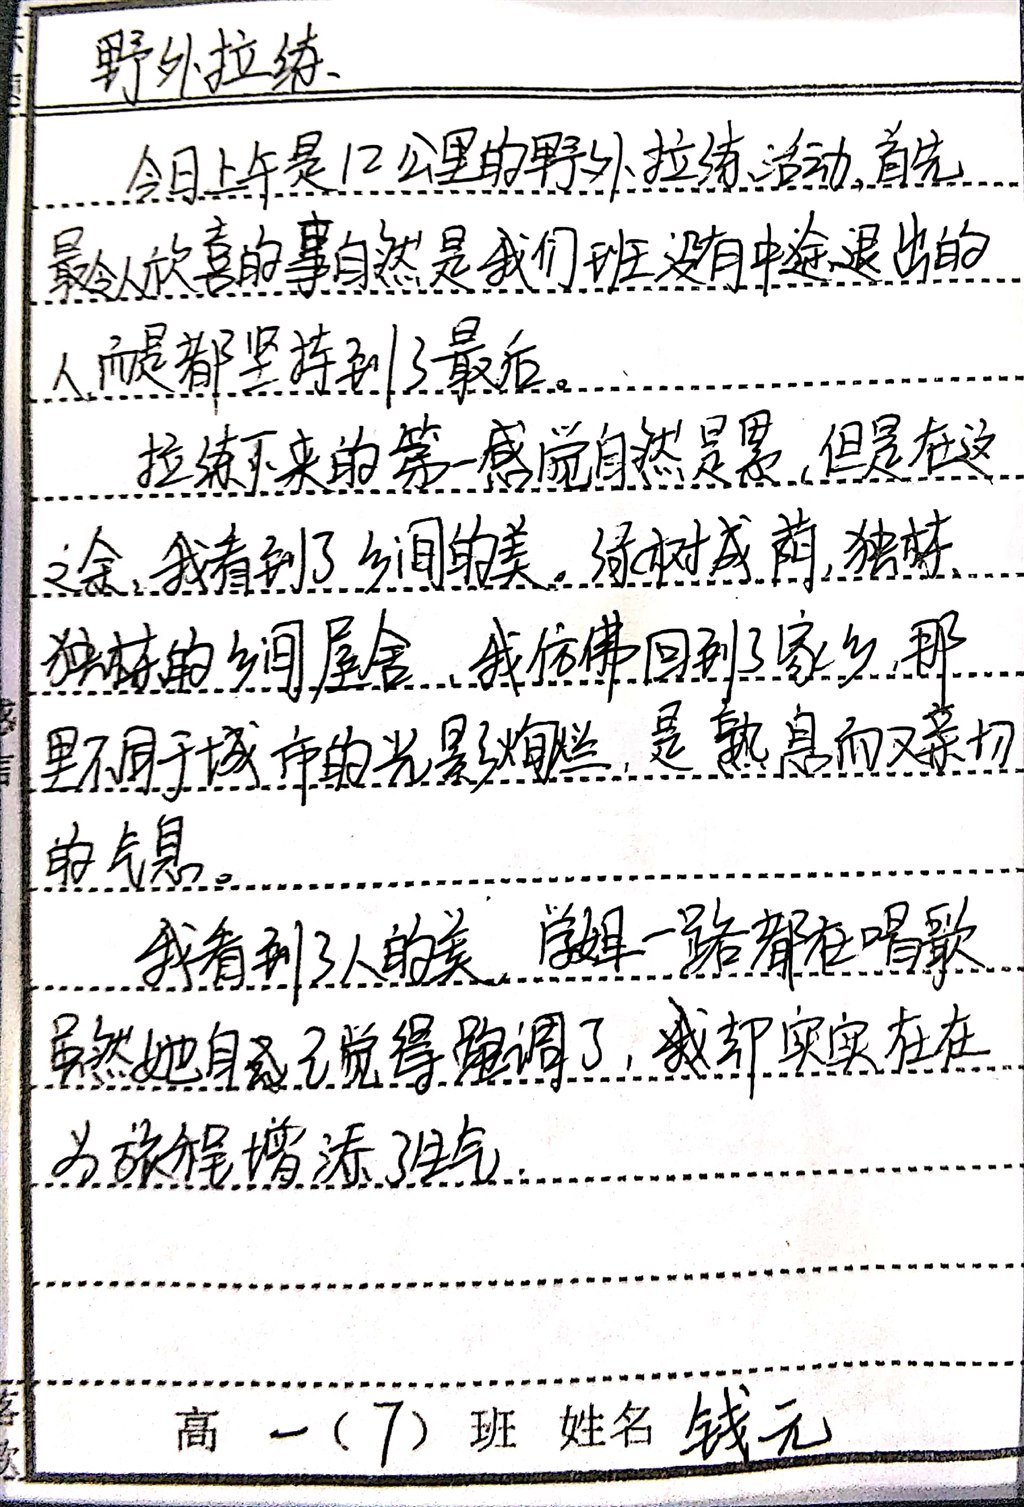 野外拉练、
今日上午是12公里的野外拉练活动,首先
最令人欣喜的事自然是我们班没有中途退出的
人,而是都坚持到了最后。
拉练下来的第一感觉自然是累,但是在这
之余,我看到了乡间的美。绿树成荫,独栋
独栋的乡间屋舍,我仿佛回到了家乡,那
里不同于城市的光影绚烂,是熟息而又亲切
的气息。
我看到了人的美,学姐一路都在唱歌
虽然她自己觉得跑调了,我却实实在在
为旅程增添了生气.
高一(7)班 姓名 钱元